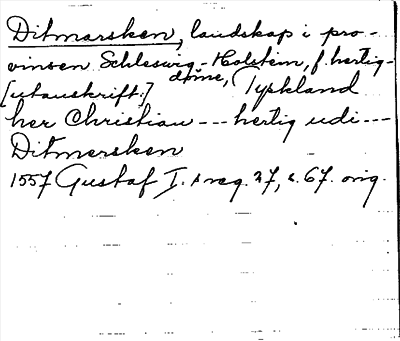 Ditmarsken, landskap i pro-
vinsen Schleswig-Holstein, f. hertig-
döme, Tyskland
[utanskrift:]
her Christian --- hertig udi ---
Ditmersken
1557 Gustaf I. s reg. 27, s. 67. orig.